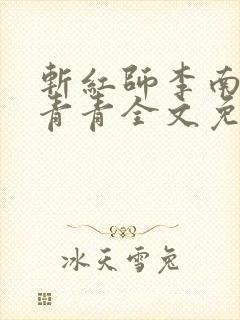 斬紅師李南
青青全文免
冰天雪兔